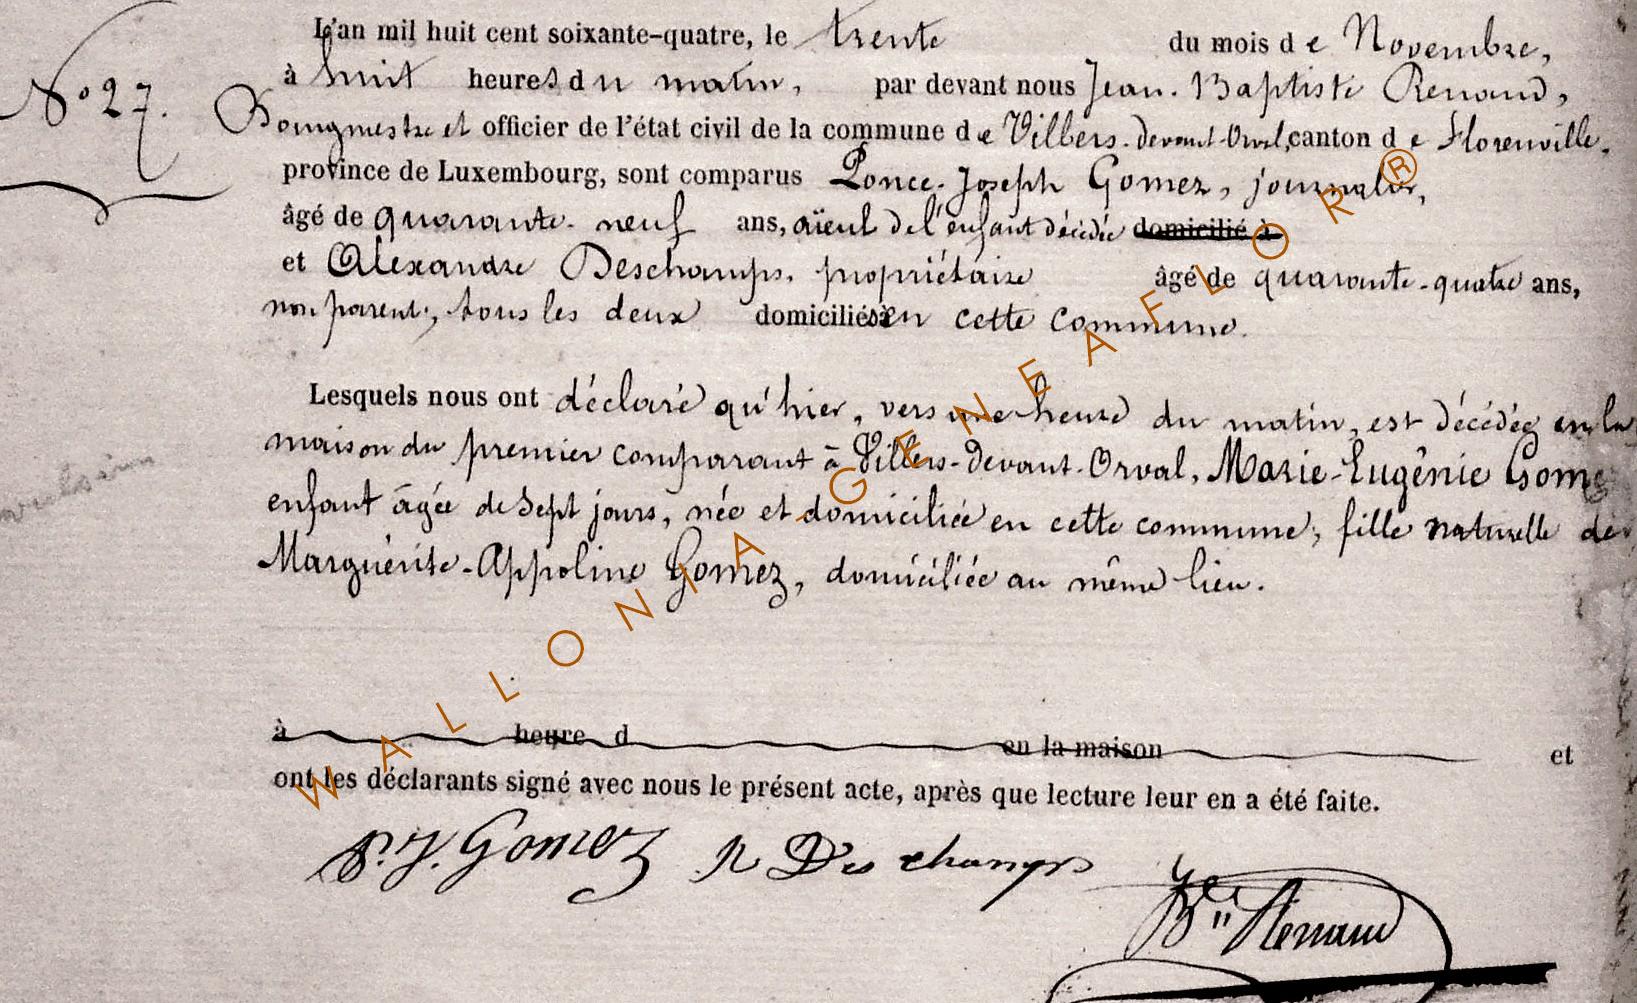 L'an mil huit cent soixante-quatre, le trente du mois de Novembre,
N° 27. à huit heures du matin, par devant nous Jean-Baptiste Renaud,
Bourgmestre et officier de l'état civil de la commune de Villers-devant-Orval, canton de Florenville,
province de Luxembourg, sont comparus Ponce-Joseph Gomez, journalier,
âgé de quarante-neuf ans, aïeul de l'enfant décédée domicilié à
et Alexandre Deschamps, propriétaire âgé de quarante-quatre ans,
non parent, tous les deux domiciliés en cette commune.
Lesquels nous ont déclaré qu'hier, vers une heure du matin, est décédée en la
maison du premier comparant à Villers-devant-Orval, Marie-Eugênie Gome
enfant âgée de sept jours, née et domiciliée en cette commune, fille naturelle de
Marguérite-Appoline Gomez, domiciliée au même lieu.
à heure d en la maison et
ont les déclarants signé avec nous le présent acte, après que lecture leur en a été faite.
P. J. Gomez A Deschamps
Renaud
WALLONIA-GENEAFLOR®